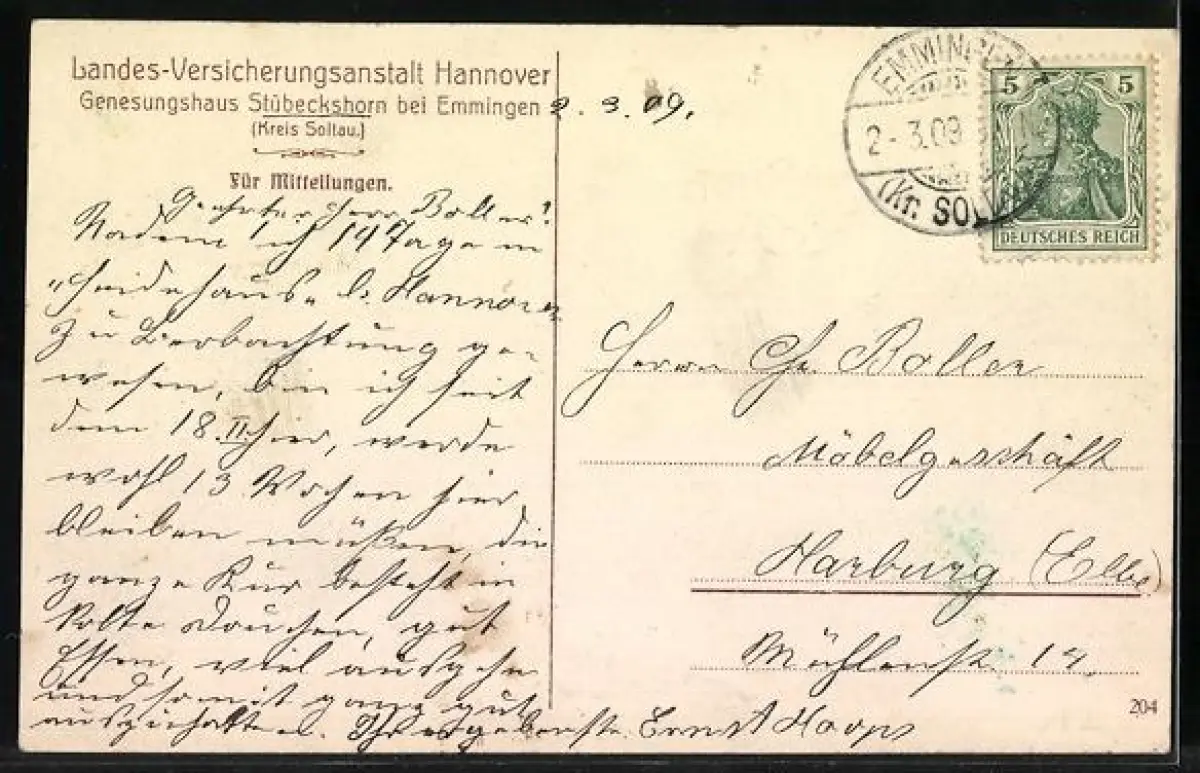 Landes-Versicherungsanstalt Hannover
Genesungshaus Stübeckshorn bei Emmingen
(Kreis Soltau.)
Für Mitteilungen.
2. 3. 09.
Geehrter Herr Boller!
Nachdem ich 14 Tage im
"Heidehaus" b. Hannover
zu Beobachtung ge-
wesen, bin ich seit
dem 18. II. hier, werde
wohl 13 Wochen hier
bleiben müssen, die
ganze Kur besteht in
kalte Douchen, gut
Essen, viel ausgehn
und somit ganz gut
auszuhalten. Ihr ergebenster Ernst Hoops
EMMINGEN
2-3.09
(Kr. SOLTAU)
5 5
DEUTSCHES REICH
Herrn Chr. Boller
Möbelgeschäft
Harburg (Elbe)
Mühlenstr.
204